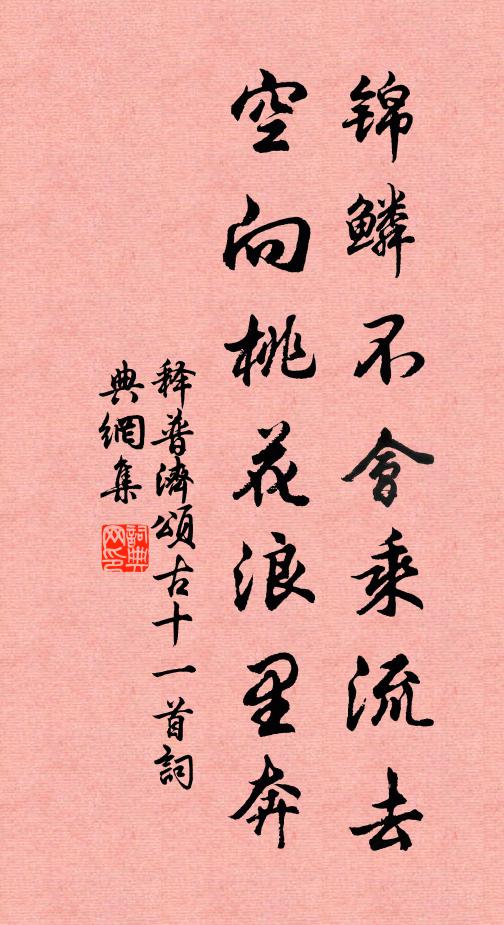 锦鳞不會乘流去
空向桃花浪里奔
释普濟頌古十一首詞
典網集
詞典
网印